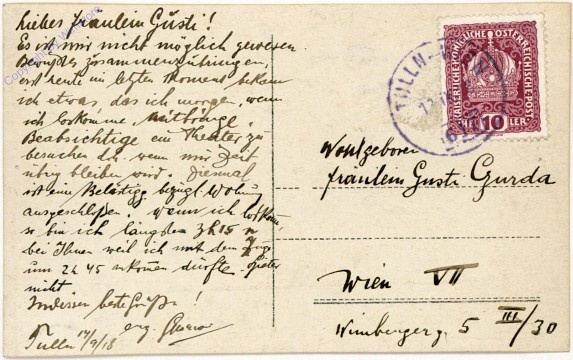 Liebes Fräulein Gusti!
Es ist mir nicht möglich gewesen
erst heute im letzten Moment bekam
ich etwas, das ich morgen, wenn
ich loskomme, mitbringe.
Beabsichtige ein Theater zu
besuchen da, wenn mir Zeit
übrig bleiben wird. Diesmal
ist eine bezugl Wohng
ausgeschloßen. wenn ich
so bin ich längstens
bei Ihnen weil ich mit dem
um 2h 45 ankomen dürfte. Später
nicht
Indessen beste Grüße!
Tulln 17/9/18 erg.
KAISERLICHE KÖNIGLICHE ÖSTERREICHISCHE POST
HELLER 10 HELLER
TULLN
Wohlgeboren
Fräulein Gusti Gurda
Wien VII
Wimberger g. 5 III/30